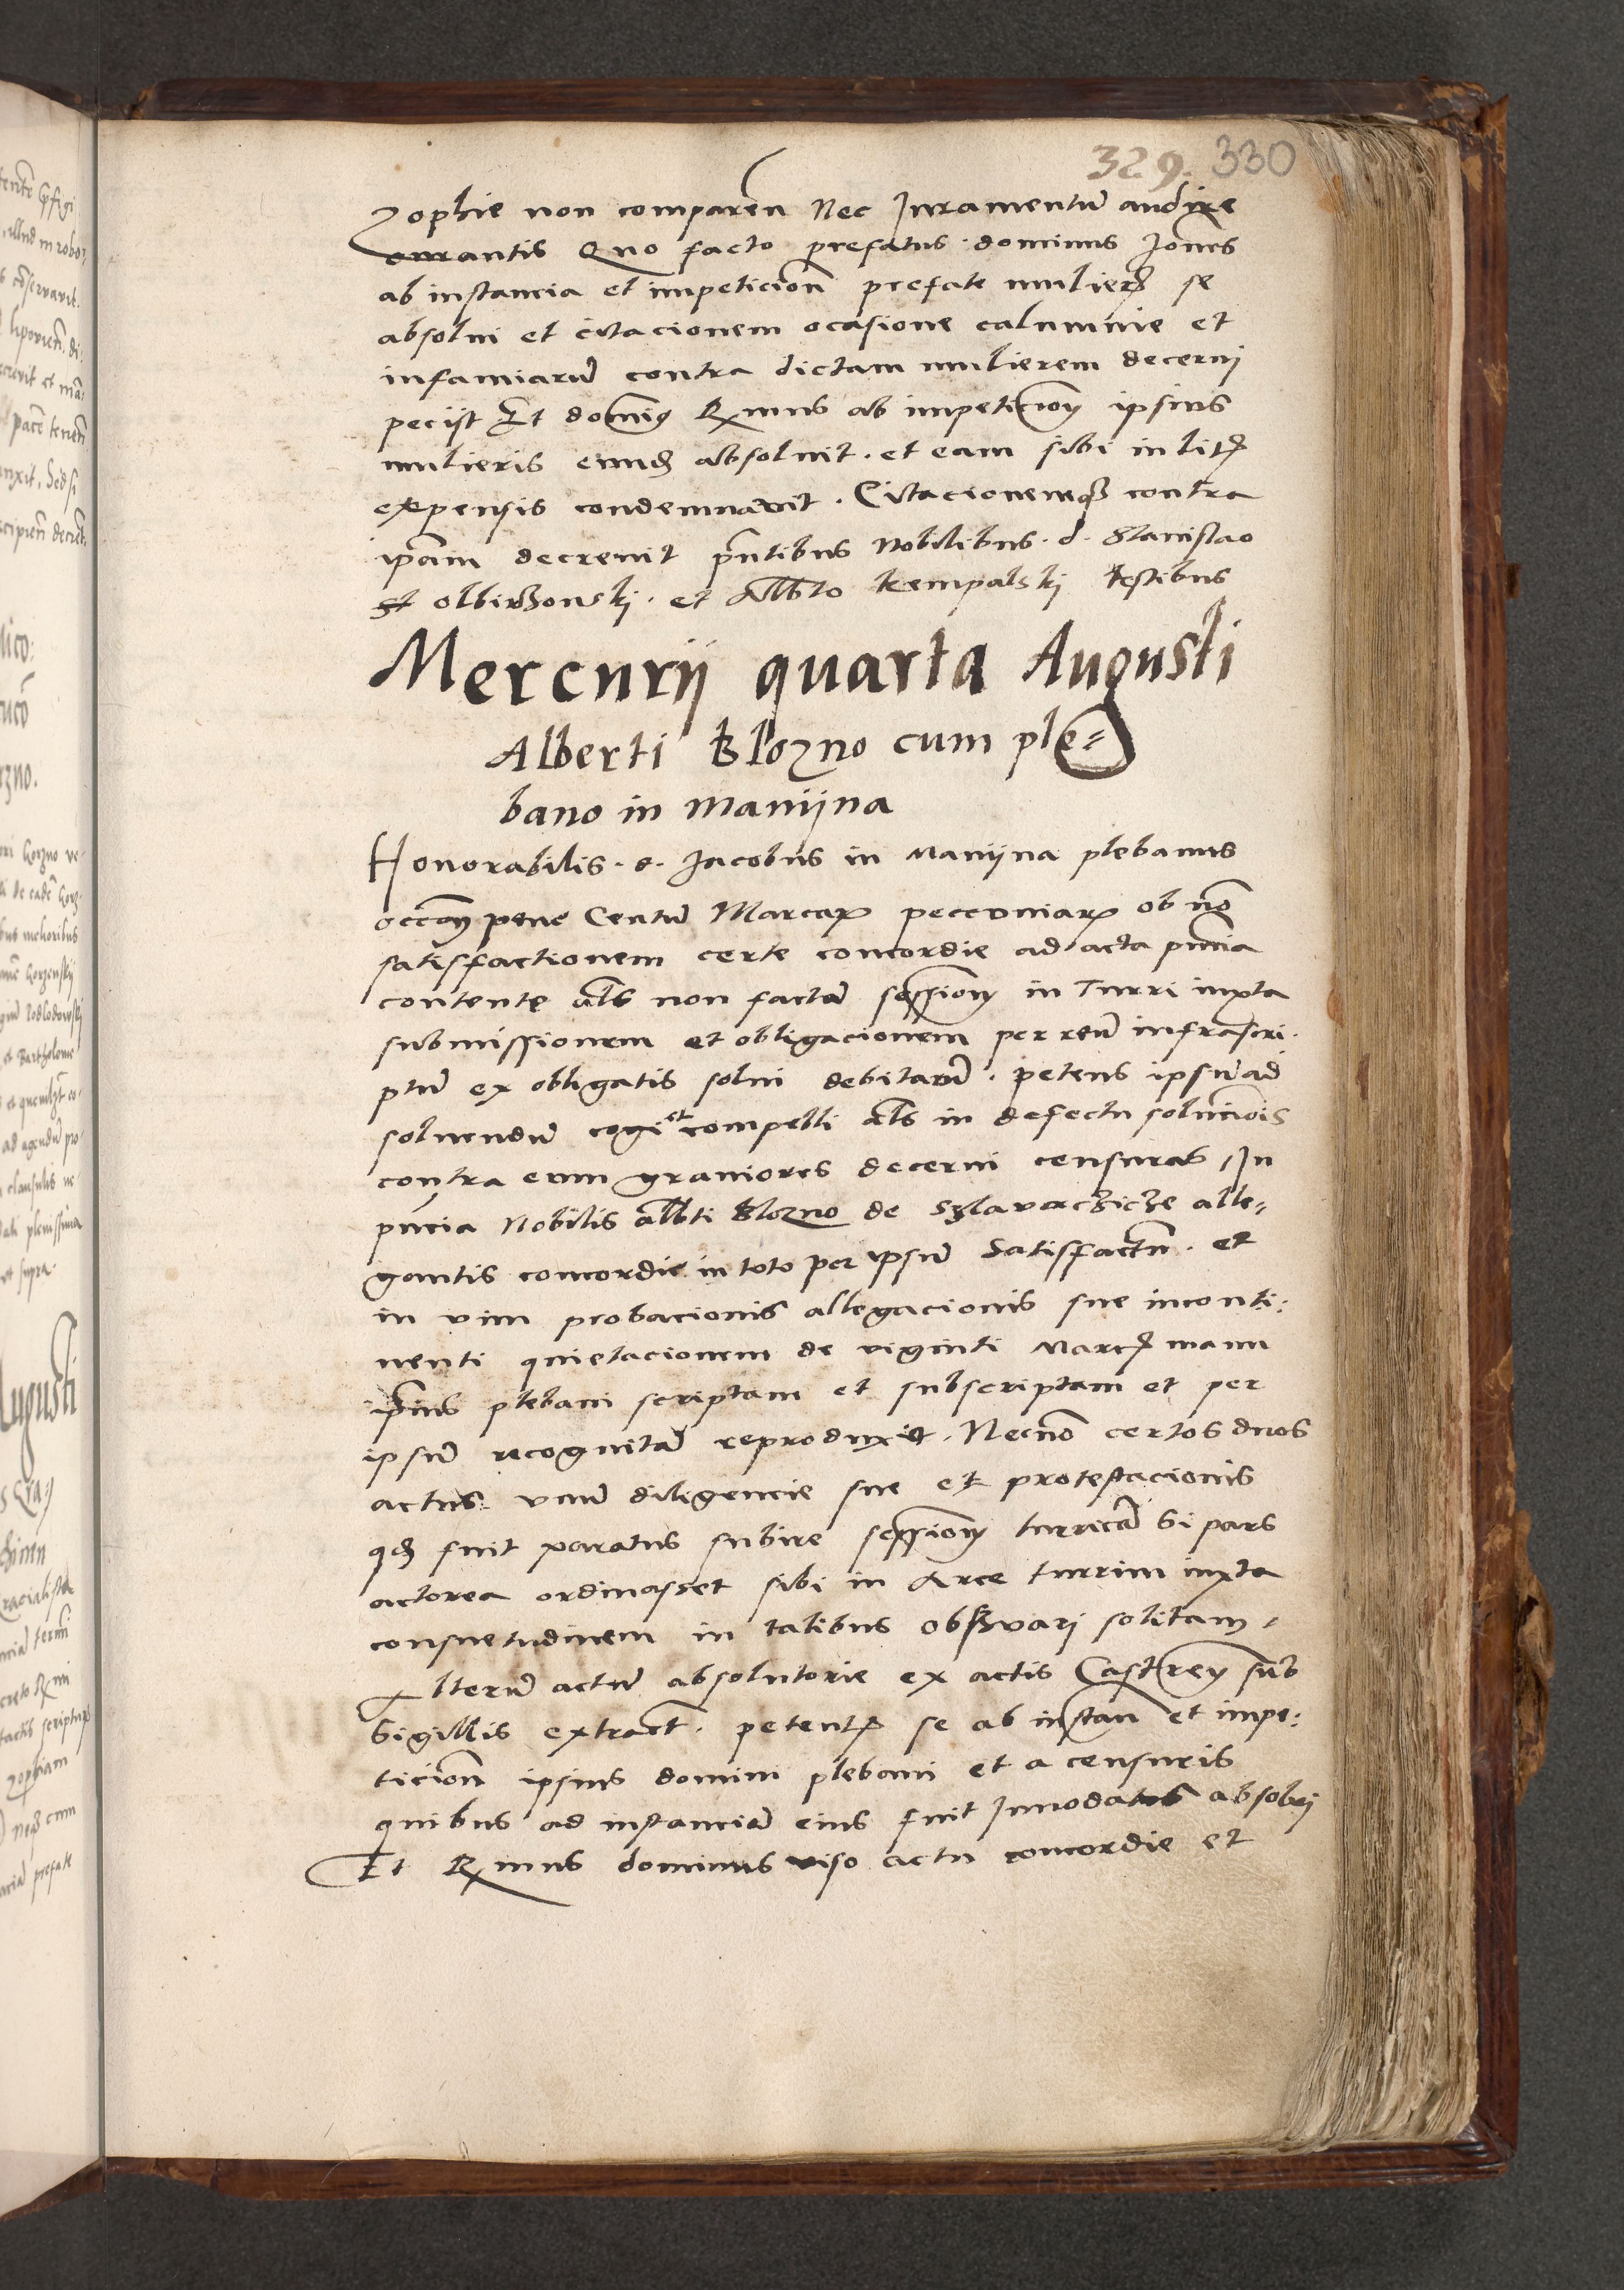 329. 330
zophie non comparen̄ Nec Juramentū audire
curantis Quo facto prefatus dominus Joñes
ab instancia et impeticioñ prefate mulierꝭ se
absolui et citacionem ocasione calumnie et
infamiarū contra dictam mulierem decerni
peciit Et domiꝯ Rmus ab impeticioñ ipsius
mulieris eund̄ absoluit. et eam sibi in litꝭ
expensis condemnavit. Citacionemqꝫ contra
ipām decreuit pn̄tibus Nobilibus. d. Stanislao
olbirzonskj. et Albto kempalskj testibus
Mercurij quarta Augusti
Alberti klozno cum ple=
bano in Manijna
Honorabilis. d. Jacobus in Manijna plebanus
occōn pene Centū Marcaꝝ pecconiaꝝ ob nō
satisfactionem certe concordie ad acta pn̄cia
contente als̄ non factā session̄ in Turri iuxta
submissionem et obligacionem per reū infrascri.
ptū ex obligatis solui debitarū. petens ipsū ad
soluendū cogi et compelli als̄ in defectu solucīois
contra eum grauiores decerni censuras, In
pn̄cia Nobilis Albti klozno de Sslavaczicze alle=
gantis concordie in toto per ipsū Satisfactū. et
in vim probacionis allegacionis sue inconti:
nenti quietacionem de viginti Marcꝭ manu
ip̄ius plebani scriptam et subscriptam et per
ipsū recognitā reproduxit. Necnō certos duos
actus vnū diligencie sue et protestacionis
qd̄ fuit paratus subire session̄ turricā Si pars
actorea ordinasset sibi in Arce turrim iuxta
consuetudinem in talibus obseruari solitam,
Alterū actū absolutorie ex actis Castreñ sub
Sigillis extract̄. petentꝭ se ab instan̄ et impe:
ticioñ ipsius domini plebani et a censuris
quibus ad instanciā eius fuit Innodatus absolui
Et Rmus dominus viso actu concordie et